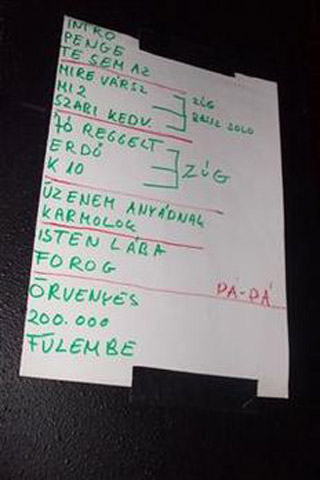 INTRO
PENGE
TE SEM AZ
MIRE VÁRSZ
MI 2
SZARI KEDV.
ZÚG
BASSZ SOLO
JÓ REGGELT
ERDŐ
K 10
ZÚG
ÜZENEM ANYÁDNAK
KARMOLOK
ISTEN LÁBA
FOROG
PÁ-PÁ
ÖRVÉNYES
200.000
FÜLEMBE